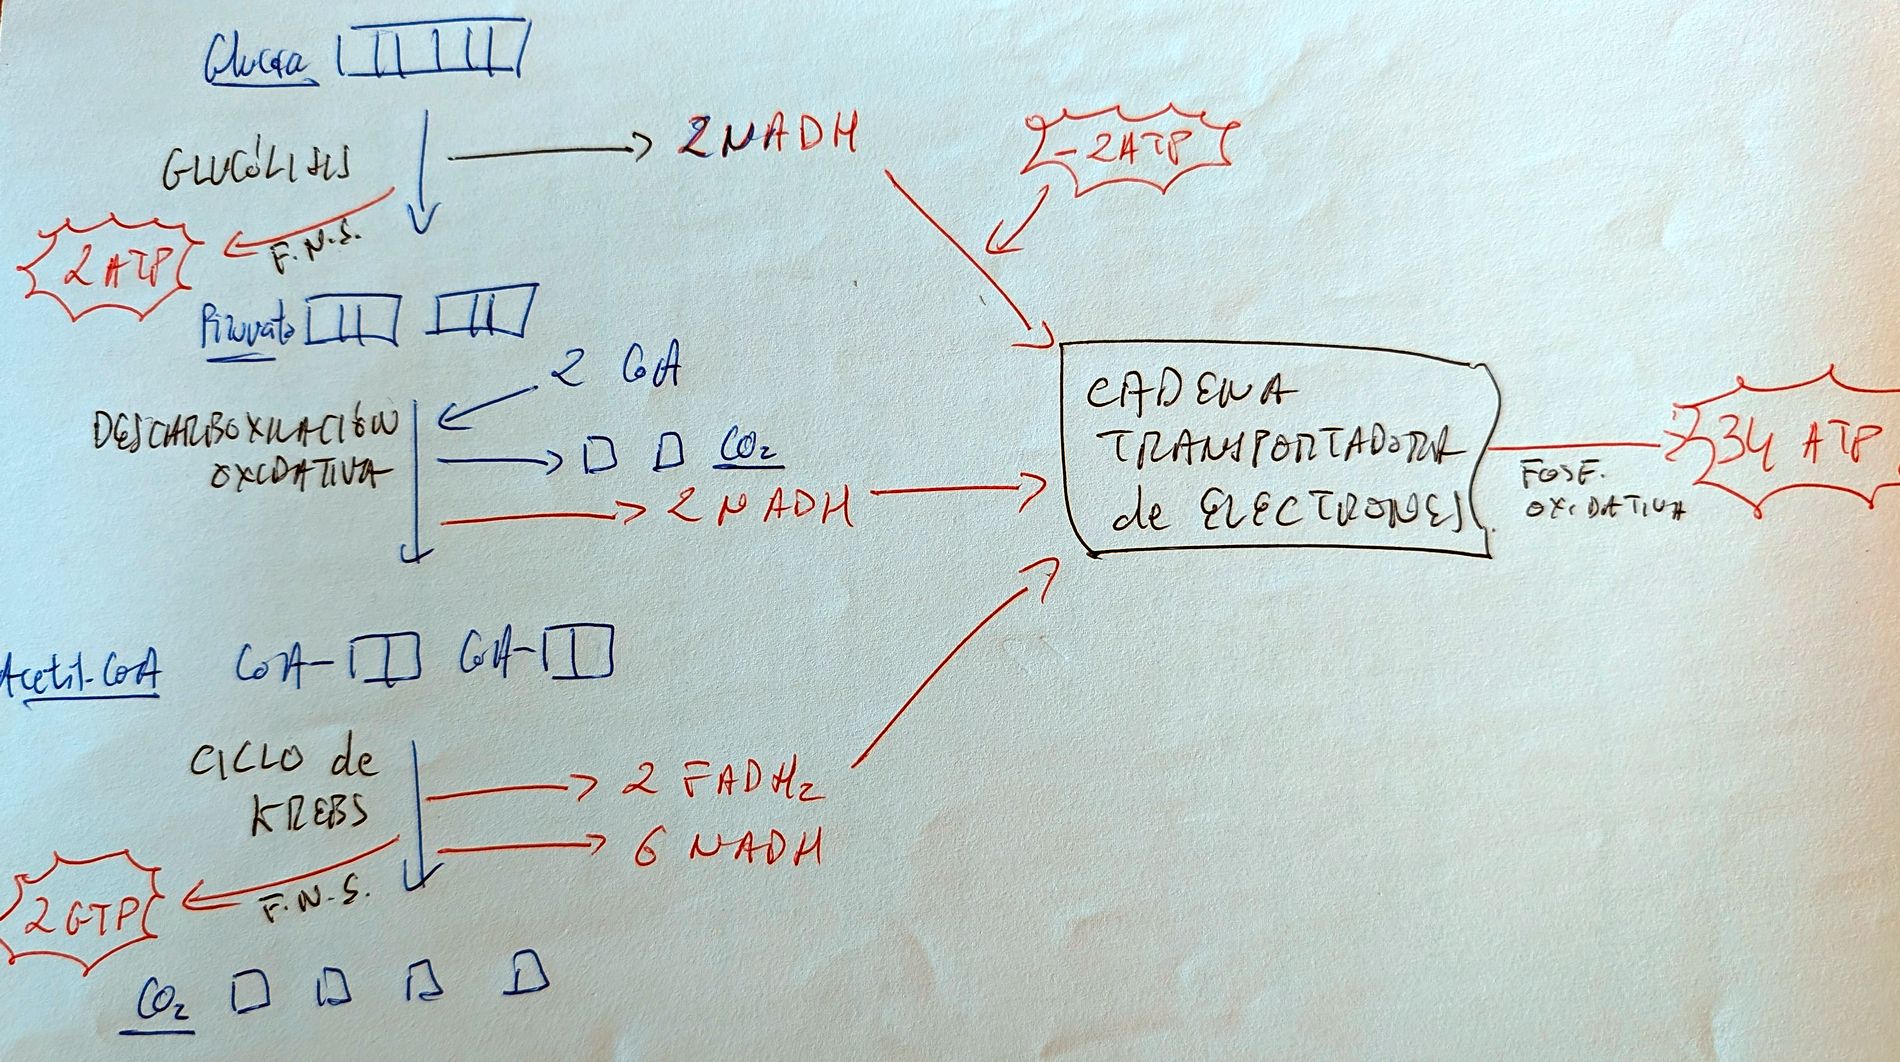 Glucosa
GLUCÓLISIS
2 NADH
-2ATP
F.N.S.
2 ATP
Piruvato
2 CoA
DESCARBOXILACIÓN
OXIDATIVA
CO₂
2 NADH
CADENA
TRANSPORTADORA
de ELECTRONES
FOSF.
OXIDATIVA
34 ATP
Acetil-CoA
CoA-
CoA-
CICLO de
KREBS
2 FADH₂
6 NADH
F.N.S.
2 GTP
CO₂